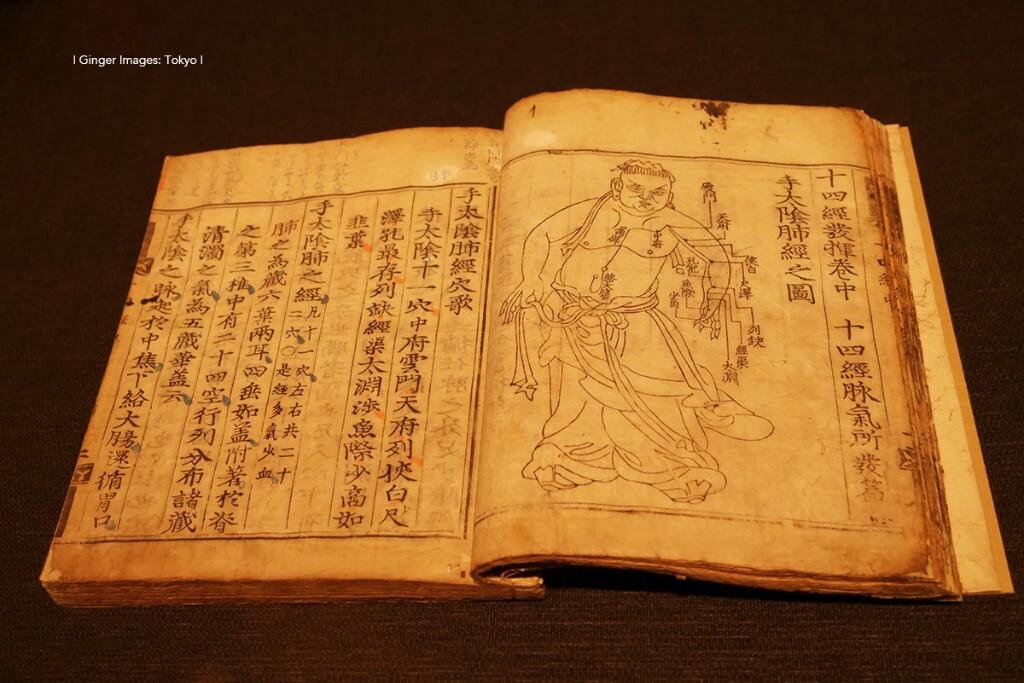 Ginger Images: Tokyo
1
十四經發揮卷中 十四經脉氣所發篇
手太陰肺經之圖
雲門
天府
俠白
尺澤
列缺
經渠
太淵
中府
孔最
魚際
少商
手太陰肺經穴歌
手太陰十一穴中府雲門天府列俠白尺
澤孔最存列缺經渠太淵渉魚際少商如
韭葉
手太陰肺之經凡十一穴左右共二十
二穴〇是經多氣少血
肺之為藏六葉兩耳四垂如盖附著於脊
之第三椎中有二十四空行列分布諸藏
清濁之氣為五藏華盖云
手太陰之脉起於中焦下絡大腸還循胃口